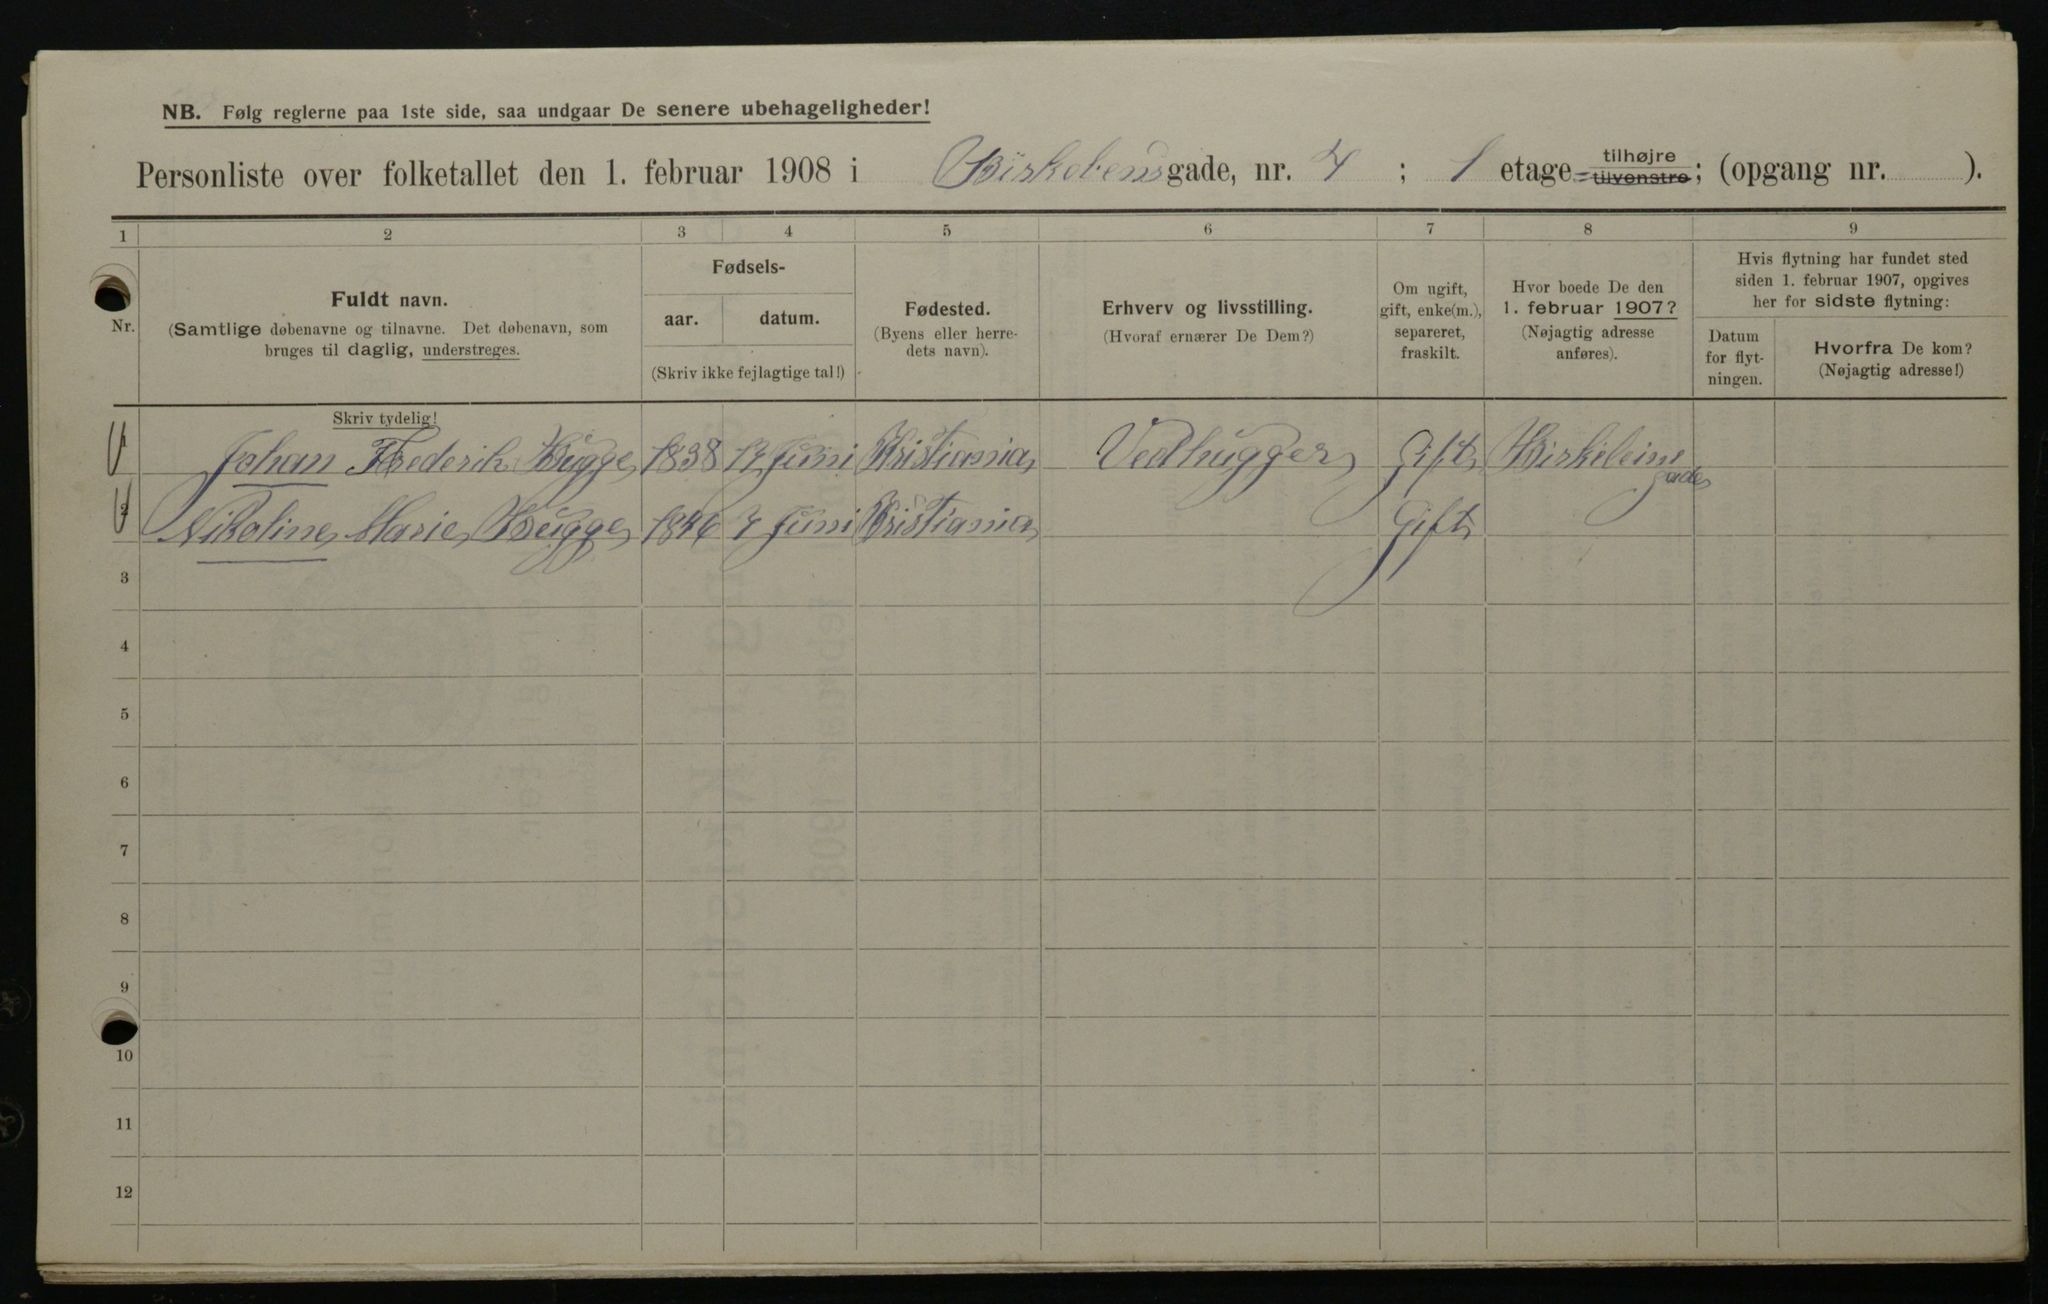 NB. Følg reglerne paa 1ste side, saa undgaar De senere ubehageligheder!
Personliste over folketallet den 1. februar 1908 i Birkebensgade, nr. 7; 1 etage tilhøjre tilvenstre; (opgang nr. ).
1 2 3 4 5 6 7 8 9
Nr.
Fuldt navn.
(Samtlige døbenavne og tilnavne. Det døbenavn, som
bruges til daglig, understreges.
Fødsels-
aar. datum.
(Skriv ikke fejlagtige tal!)
Fødested.
(Byens eller herre-
dets navn).
Erhverv og livsstilling.
(Hvoraf ernærer De Dem?)
Om ugift,
gift, enke(m.),
separeret,
fraskilt.
Hvor boede De den
1. februar 1907?
(Nøjagtig adresse
anføres).
Hvis flytning har fundet sted
siden 1. februar 1907, opgives
her for sidste flytning:
Datum
for flyt-
ningen.
Hvorfra De kom?
(Nøjagtig adresse!)
Skriv tydelig!
1 Johan Frederik Bugge 1838 17 Juni Kristiania Vedhugger Gift Birkebeine
gade
2 Nikoline Marie Bugge 1846 7 Juni Kristiania Gift
3
4
5
6
7
8
9
10
11
12